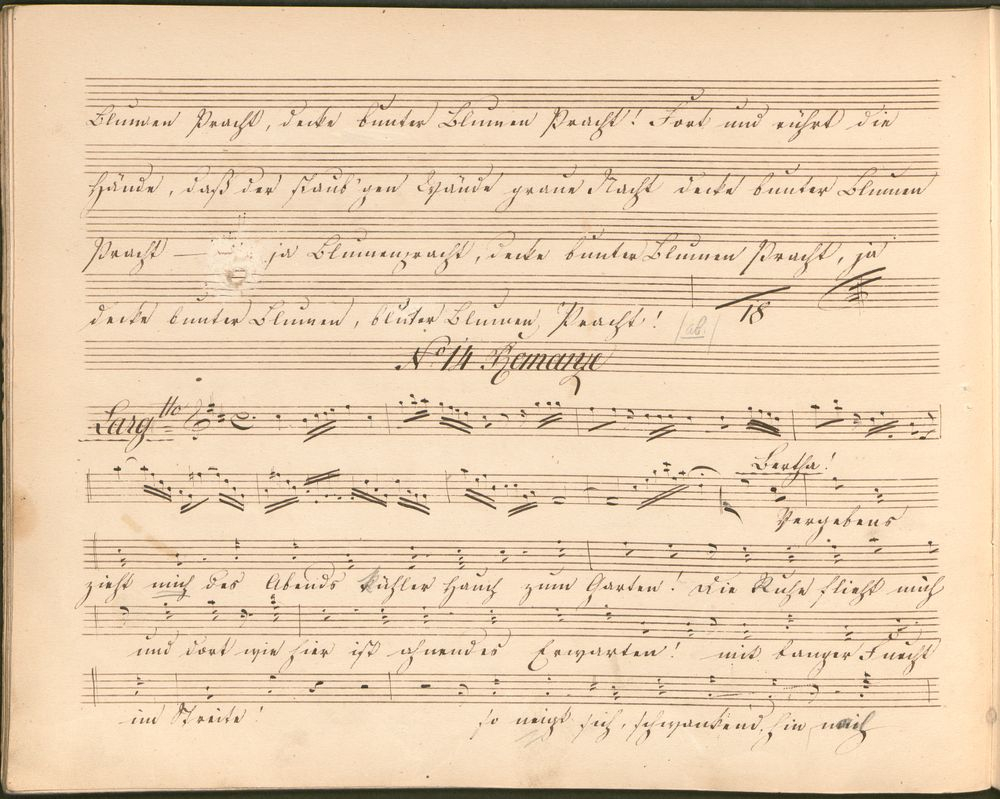 Blumen Pracht, decke bunter Blumen Pracht! Fort und rührt die
Hände, daß der staub'gen Wände graue Nacht decke bunter Blumen
Pracht — ja Blumenpracht, decke bunter Blumen Pracht, ja
decke bunter Blumen, bunter Blumen Pracht!
18
No 14 Romanze
Largtto
Bertha!
Vergebens
zieht mich des Abends kühler Hauch zum Garten! Die Ruhe flieht mich
und dort wie hier ist ahnendes Erwarten! mit banger Furcht
im Streite!
so neigt sich, schwankend, hin mich